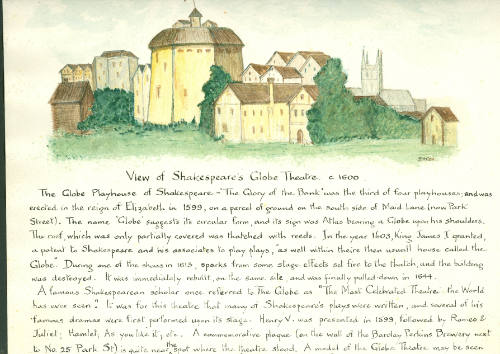 View of Shakespeare's Globe Theatre. c 1600
The Globe Playhouse of Shakespeare - "The Glory of the Bank" was the third of four playhouses, and was
erected in the reign of Elizabeth in 1599, on a parcel of ground on the south side of Maid Lane (now Park
Street). The name "Globe" suggests its circular form, and its sign was Atlas bearing a Globe upon his shoulders.
The roof, which was only partially covered was thatched with reeds. In the year 1603, King James I granted,
a patent to Shakespeare and his associates to play plays, "as well within their then usuall house called the
Globe." During one of the shows in 1613, sparks from some stage effects set fire to the thatch, and the building
was destroyed. It was immediately rebuilt, on the same site, and was finally pulled down in 1644.
A famous Shakespearean scholar once referred to The Globe as "The Most Celebrated Theatre the World
has ever seen". It was for this theatre that many of Shakespeare's plays were written, and several of his
famous dramas were first performed upon its stage. Henry V. was presented in 1599, followed by Romeo &
Juliet; Hamlet, As you like it, etc. A commemorative plaque (on the wall of the Barclay Perkins Brewery next
to No. 25 Park St) is quite near the spot where the theatre stood. A model of the Globe Theatre may be seen